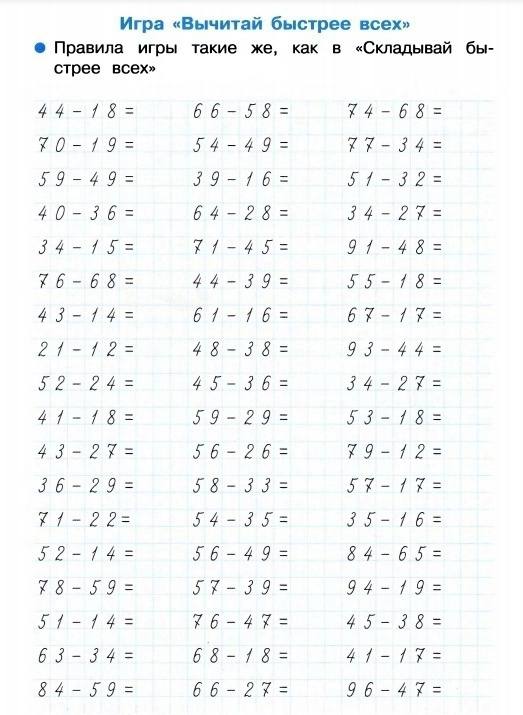 Игра «Вычитай быстрее всех»
Правила игры такие же, как в «Складывай бы-
стрее всех»
44-18= 66-58= 74-68=
70-19= 54-49= 77-34=
59-49= 39-16= 51-32=
40-36= 64-28= 34-27=
34-15= 71-45= 91-48=
76-68= 44-39= 55-18=
43-14= 61-16= 67-17=
21-12= 48-38= 93-44=
52-24= 45-36= 34-27=
41-18= 59-29= 53-18=
43-27= 56-26= 79-12=
36-29= 58-33= 57-17=
71-22= 54-35= 35-16=
52-14= 56-49= 84-65=
78-59= 57-39= 94-19=
51-14= 76-47= 45-38=
63-34= 68-18= 41-17=
84-59= 66-27= 96-47=